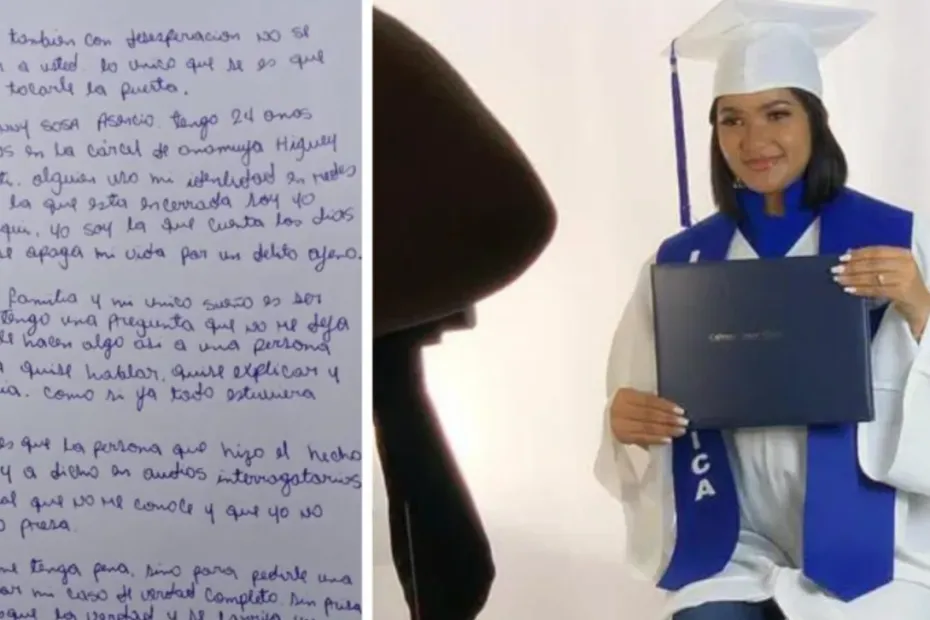 también con desesperación no se
a usted. lo unico que se es que
tocarle la puerta.
SOSA ASencio. tengo 24 anos
en la cárcel de anamuya Higuey
alguien uso mi identidad en redes
la que esta encerrada soy yo
yo soy la que cuenta los dias
apaga mi vida por un delito ajeno.
familia y mi unico sueño es ser
tengo una pregunta que no me deja
hacen algo asi a una persona
quise hablar, quise explicar y
como si ya todo estuviera
es que la persona que hizo el hecho
y a dicho en audios interrogatorios
que no me conoce y que yo no
presa.
tenga pena, sino para pedirle una
mi caso de verdad completo. sin prisa
la verdad y se
ICA